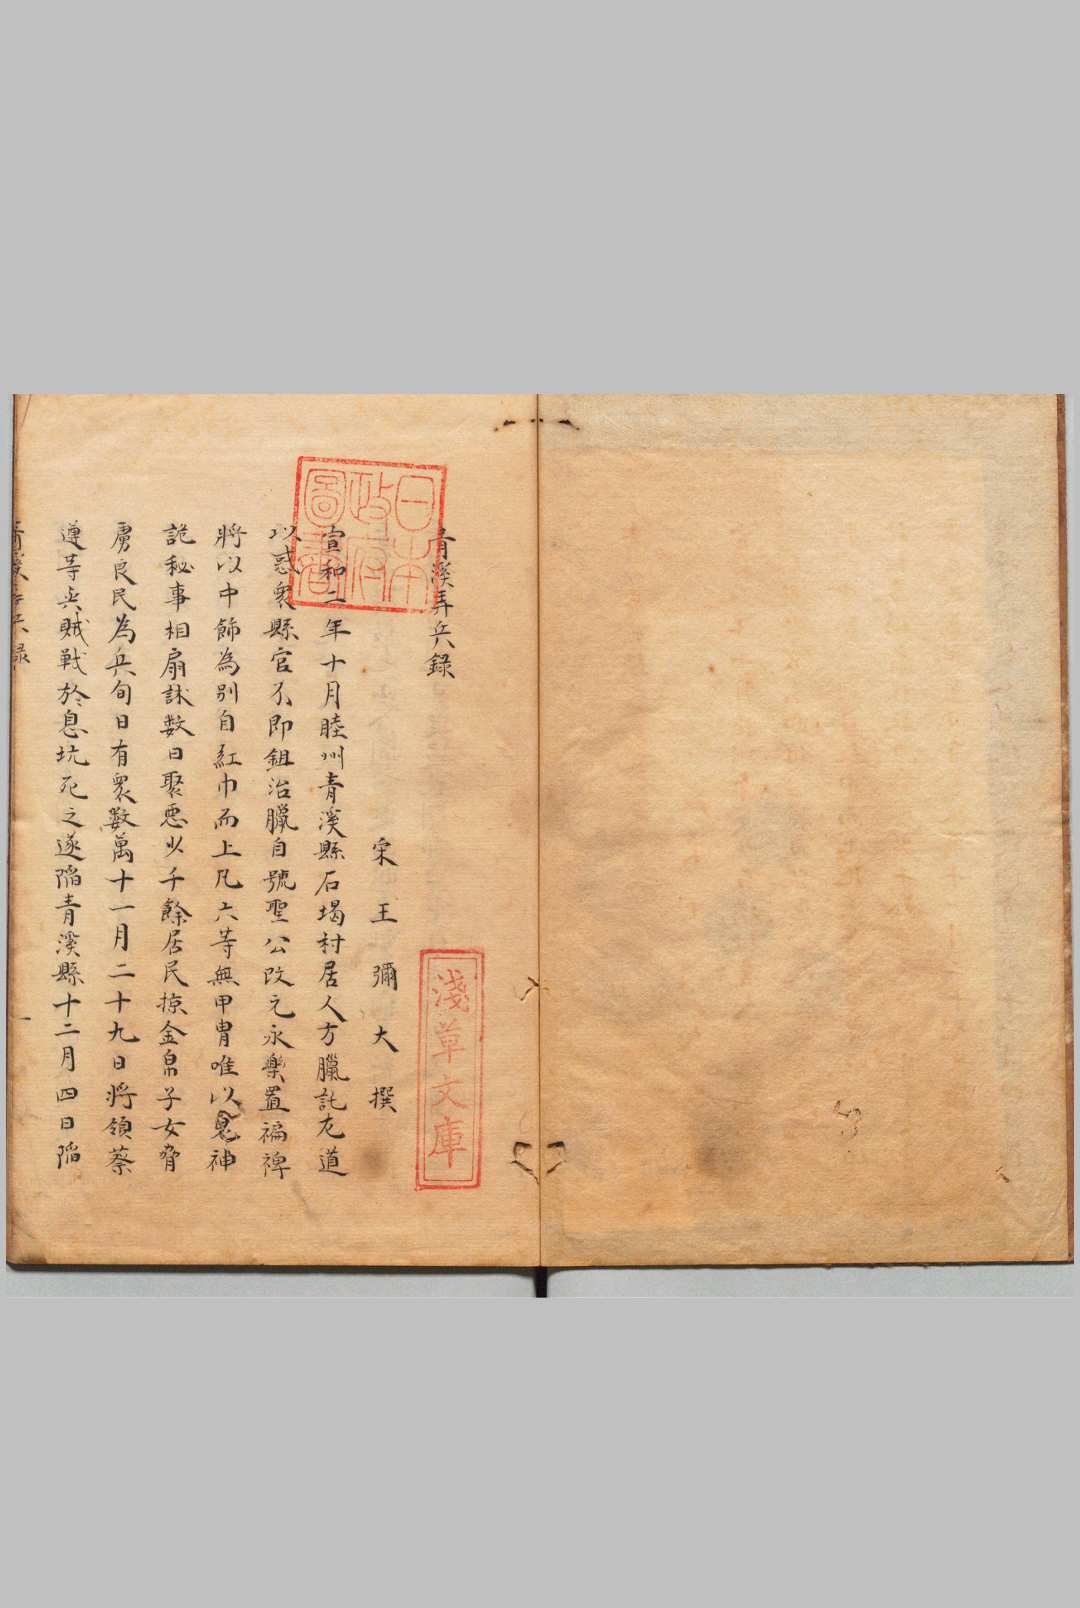 青溪弄兵錄
宋王彌大撰
宣和二年十月睦州青溪縣石堨村居人方臘託左道
以惑衆縣官不即鉏治臘自號聖公改元永樂置褊裨
將以巾飾為別自紅巾而上凡六等無甲胄唯以鬼神
詭秘事相扇訹數日聚惡少千餘居民掠金帛子女脅
虜良民為兵旬日有衆數萬十一月二十九日將領蔡
遵等與賊戰於息坑死之遂陷青溪縣十二月四日陷
青溪弄兵錄
一
日本政府圖書
淺草文庫